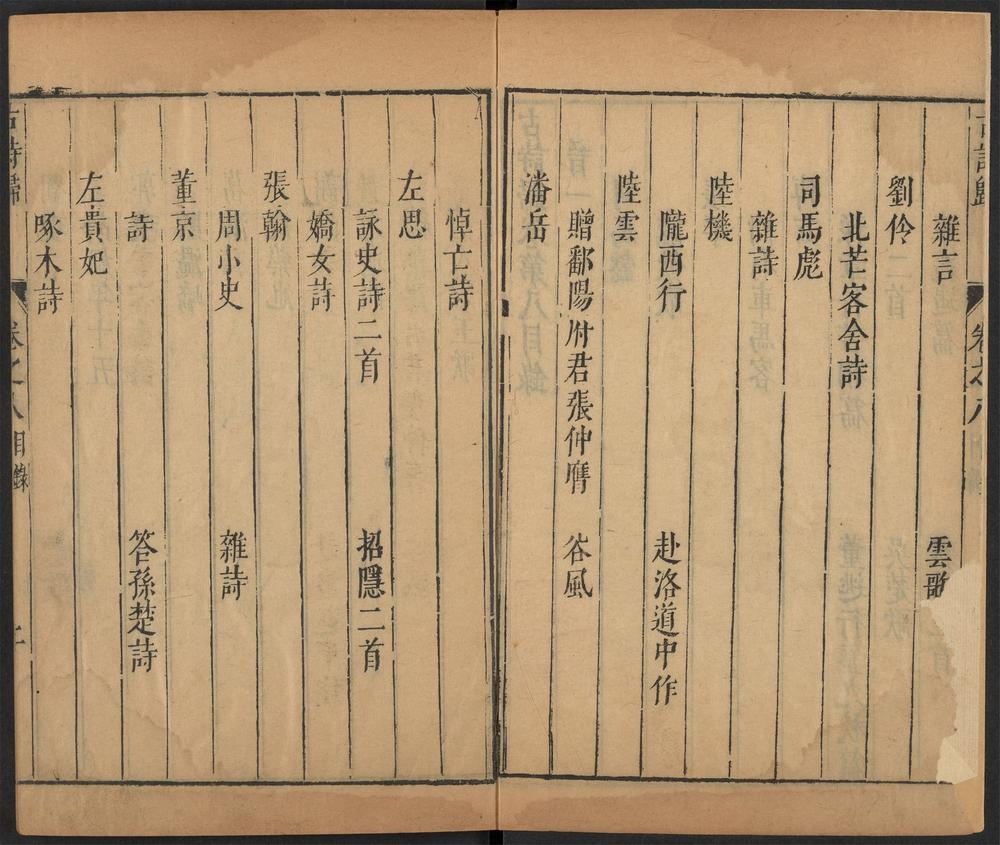 雜言 雲歌
劉伶
北芒客舍詩
司馬彪
雜詩
陸機
隴西行 赴洛道中作
陸雲
贈鄱陽府君張仲膺 谷風
潘岳
悼亡詩
左思
詠史詩二首 招隱二首
嬌女詩
張翰
周小史 雜詩
董京
詩 答孫楚詩
左貴妃
啄木詩
古詩歸 卷之八 目錄